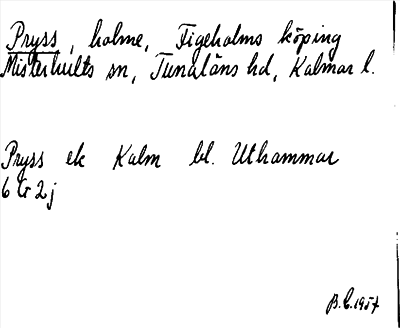 Pryss, holme, Figeholms köping
Misterhults sn, Tunaläns hd, Kalmar l.
Pryss ek Kalm bl. Uthammar
6 Gr 2 j
B.C. 1957